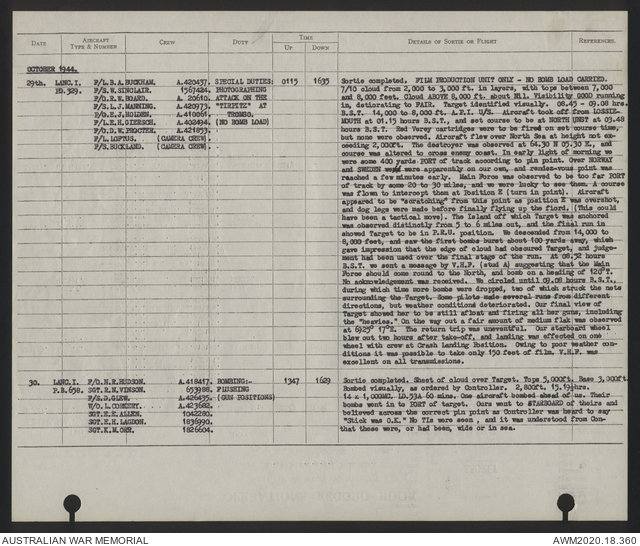 DATE AIRCRAFT TYPE & NUMBER CREW DUTY TIME UP DOWN DETAILS OF SORTIE OR FLIGHT REFERENCES.
OCTOBER 1944.
29th. LANC.I. F/L.B.A.BUCKHAM. A.420437. SPECIAL DUTIES: 0115 1635 Sortie completed. FILM PRODUCTION UNIT ONLY - NO BOMB LOAD CARRIED.
PD.329. F/S.W.SINCLAIR. 1567424. PHOTOGRAPHING 7/10 cloud from 2,000 to 3,000 ft. in layers, with tops between 7,000
P/O.R.W.BOARD. A. 20610. ATTACK ON THE and 8,000 feet. Cloud ABOVE 8,000 ft. about Nil. Visibility GOOD running
F/S.L.J.MANNING. A.420973. "TIRPITZ" AT in, detiorating to FAIR. Target identified visually. 08.45 - 09.08 hrs.
F/O.E.J.HOLDEN. A.410061. TROMSO. B.S.T. 14,000 to 8,000 ft. A.P.I. U/S. Aircraft took off from LOSSIE-
F/L.E.H.GIERSCH. A.402494. (NO BOMB LOAD) MOUTH at 01.15 hours B.S.T., and set course to be at NORTH UNST at 03.48
P/O.D.W.PROCTER. A.421853. hours B.S.T. Red Verey cartridges were to be fired on set course time,
F/L.LOFTUS. (CAMERA CREW). but none were observed. Aircraft flew over North Sea at height not ex-
F/S.BUCKLAND. (CAMERA CREW). ceeding 2,000ft. The destroyer was observed at 64.30 N 05.30 E., and
course was altered to cross enemy coast. In early light of morning we
were some 400 yards PORT of track according to pin point. Over NORWAY
and SWEDEN were apparently on our own, and rendez-vous point was
reached a few minutes early. Main Force was observed to be too far PORT
of track by some 20 to 30 miles, and we were lucky to see them. A course
was flown to intercept them at Position E (turn in point). Aircraft
appeared to be "scratching" from this point as position E was overshot,
and dog legs were made before finally flying up the fiord. (This could
have been a tactical move). The Island off which Target was anchored
was observed distinctly from 5 to 6 miles out, and the final run in
showed Target to be in P.R.U. position. We descended from 14,000 to
8,000 feet, and saw the first bombs burst about 100 yards away, which
gave impression that the edge of cloud had obscured Target, and judge-
ment had been used over the final stage of the run. At 08.52 hours
B.S.T. we sent a message by V.H.F. (stud A) suggesting that the Main
Force should come round to the North, and bomb on a heading of 120°T.
No acknowledgement was received. We circled until 09.08 hours B.S.T.,
during which time more bombs were dropped, two of which struck the nets
surrounding the Target. Some pilots made several runs from different
directions, but weather conditions deteriorated. Our final view of
Target showed her to be still afloat and firing all her guns, including
the "heavies." On the way out a fair amount of medium flak was observed
at 6925° 17°E. The return trip was uneventful. Our starboard wheel
blew out two hours after take-off, and landing was effected on one
wheel with crew at Crash Landing Position. Owing to poor weather con-
ditions it was possible to take only 150 feet of film. V.H.F. was
excellent on all transmissions.
30. LANC.I. F/O.N.R.HUDSON. A.418417. BOMBING:- 1347 1629 Sortie completed. Sheet of cloud over Target. Tops 5,000ft. Base 3,000ft.
P.B.658. SGT.R.N.VINSON. 653988. FLUSHING Bombed visually, as ordered by Controller. 2,800ft. 15.19½hrs.
F/S.D.GLEW. A.426435. (GUN POSITIONS) 14 x 1,000MC. LD.53A 60 mins. One aircraft bombed ahead of us. Their
W/O.L.CORKERY. A.423682. bombs went in to PORT of target. Ours went to STARBOARD of theirs and
SGT.E.E.ALLEN. 1042280. believed across the correct pin point as Controller was heard to say
SGT.E.H.LAGDON. 1836990. "Stick was O.K." No TIs were seen , and it was understood from Con-
SGT.K.M.ORR. 1826604. that these were, or had been, wide or in sea.
AUSTRALIAN WAR MEMORIAL AWM2020.18.360